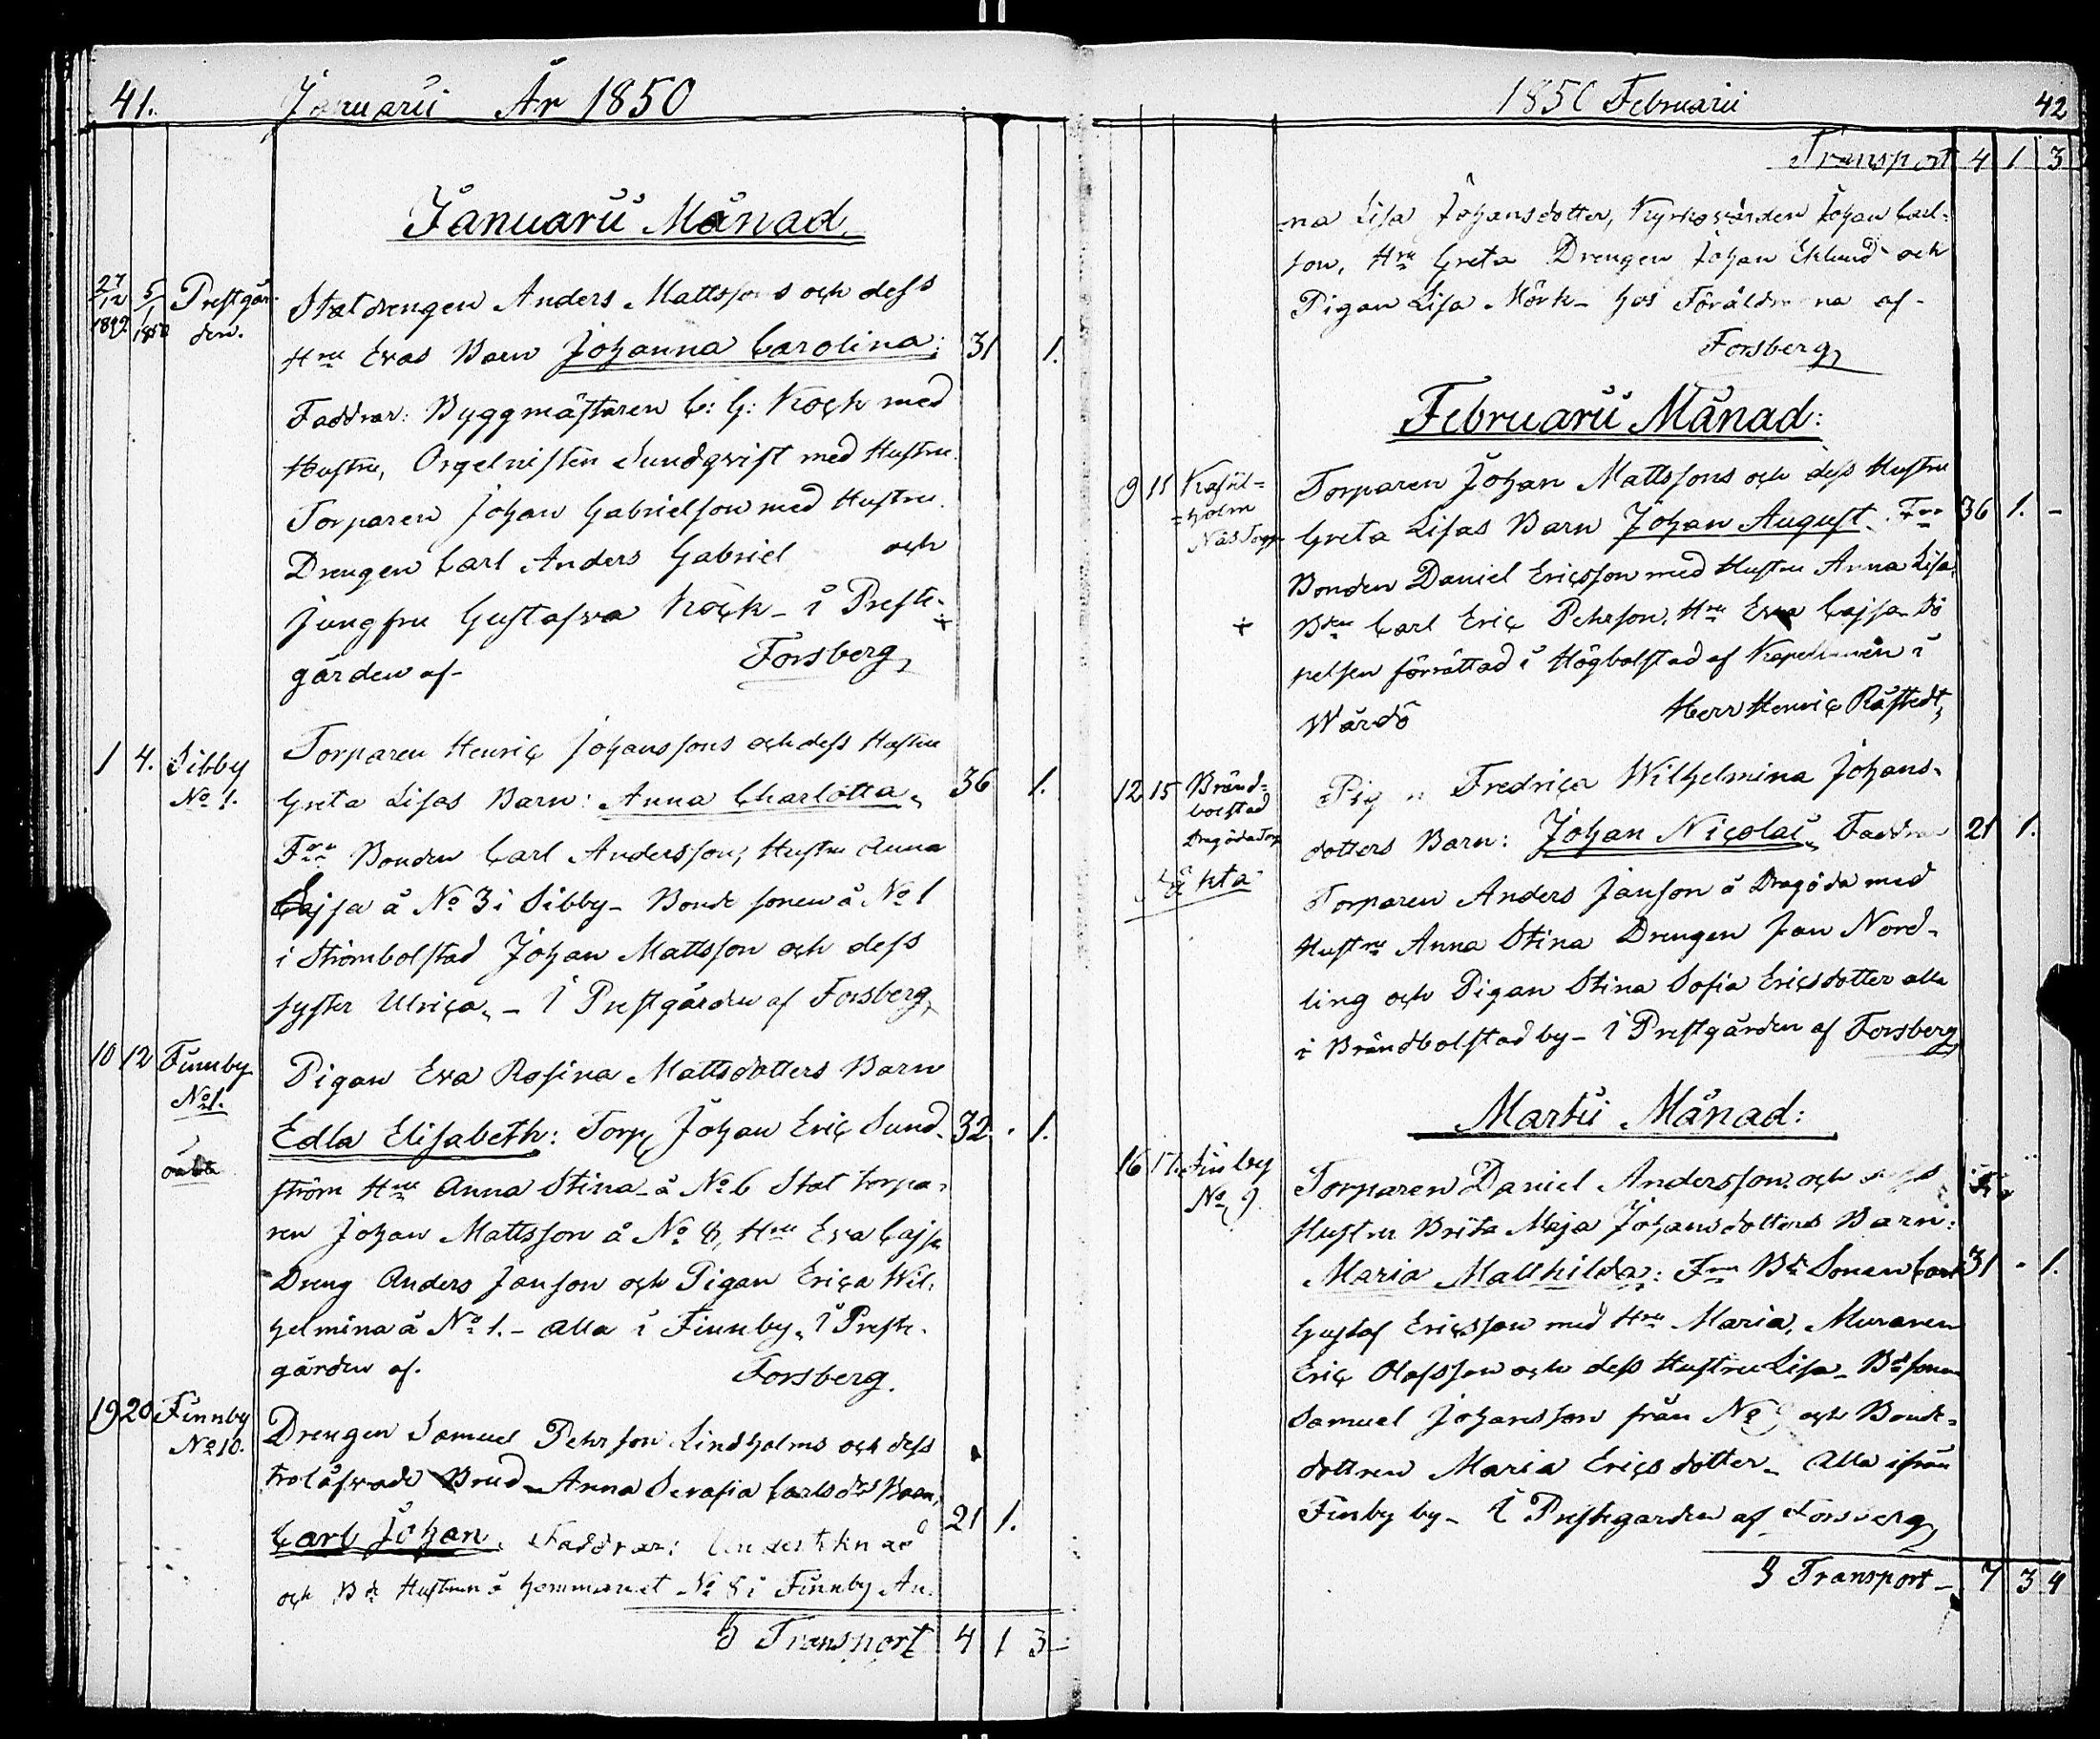 41. Januarii År 1850
Januarii Månad
27/12 1849 5/1 1850 Prestgår-
den.
Statdrengen Anders Mattssons och dess
Hru Evas Barn Johanna Carolina: 31 1.
Faddrar: Byggmästaren C: G: Koch med
Hustru, Orgelnisten Sundqvist med Hustru
Torparen Johan Gabrielson med Hustru
Drengen Carl Anders Gabriel och
Jungfru Gustafva Koch - i Preste-
gården af - Forsberg
1 4. Sibby
No 1.
Torparen Henric Johanssons och dess Hustru
Greta Lisas Barn: Anna Charlotta 36 1.
Fre Bonden Carl Andersson, Hustru Anna
Cajsa å No 3 i Sibby - Bonde sonen å No 1
i Strömbolstad Johan Mattsson och dess
syster Ulrica, - i Prestgården af Forsberg
10 12 Finnby
No 1.
oäkta
Pigan Eva Rosina Mattsdotters Barn
Edla Elisabeth: Torp Johan Eric Sund- 32 - 1.
ström Hru Anna Stina - å No 6 Stat torpa-
ren Johan Mattsson å No 8, Hru Eva Cajsa
Dreng Anders Janson och Pigan Erica Wil-
helmina å No 1. - alla i Finnby, i Preste-
gården af. Forsberg.
19 20 Finnby
No 10.
Drengen Samuel Pehrson Lindholms och dess
trolåfvade Brud - Anna Serafia Carlsdrs Barn,
Carl Johan. Faddrar: Underteknad 21 1.
och Bde Hustrun å hemmanet No 8 i Finnby An-
Transport 4 1 3
1850 Februarii 42
Transport 4 1 3
-na Lisa Johansdotter, Kyrkovärden Johan Carl-
son, Hru Greta Drengen Johan Eklund och
Pigan Lisa Mörk - hos Föräldrarna af -
Forsberg
Februarii Månad:
9 11
holm
Näs Torp
Torparen Johan Mattssons och dess Hustru
Greta Lisas Barn Johan August. Fre 36 1. -
Bonden Daniel Ericsson med Hustru Anna Lisa,
Carl Eric Pehrson, Hru Eva Cajsa Dö
pelsen förrättad i Högbolstad af Kapellanen i
Wårdö Herr Henric Råstedt,
12 15 Bränd-
bolstad
Dragöda Torp
oäkta
Pigan Fredrica Wilhelmina Johans-
dotters Barn: Johan Nicolai Faddrar 21 1.
Torparen Anders Janson å Dragöda med
Hustru Anna Stina Drengen Jan Nord-
ling och Pigan Stina Sofia Ericsdotter alla
i Brändbolstad by - i Prestgården af Forsberg
Martii Månad:
16 17 Finby
No 9
Torparen Daniel Andersson och dess
Hustru Brita Maja Johansdotters Barn:
Maria Mathilda: Fre Bde Sonen Carl 31 - 1.
Gustaf Ericsson med Hru Maria, Muraren
Eric Olofsson och dess Hustru Lisa - Bdsonen
Samuel Johansson från No 9 och Bonde-
dottren Maria Ericsdotter - Alla ifrån
Finby by - I Prestegården af Forsberg
Transport - 7 3 4